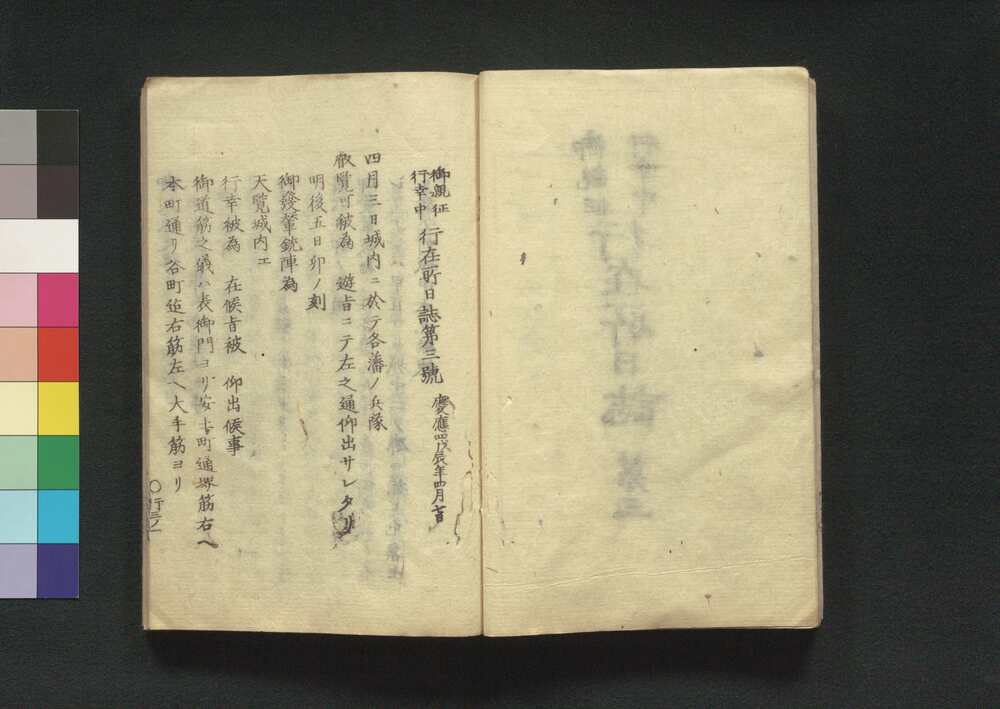 御親征
行幸中 行在所日誌第三號 慶應四戊辰年四月
四月三日城内ニ於テ各藩ノ兵隊
叡覽可被為 遊旨ニテ左之通仰出サレタリ
明後五日卯ノ刻
御發輦銃陣為
天覽城内エ
行幸被為 在候旨被 仰出候事
御道筋之儀ハ表御門ヨリ安土町通堺筋右ヘ
本町通リ谷町迄右筋左ヘ大手筋ヨリ
〇行三ノ一